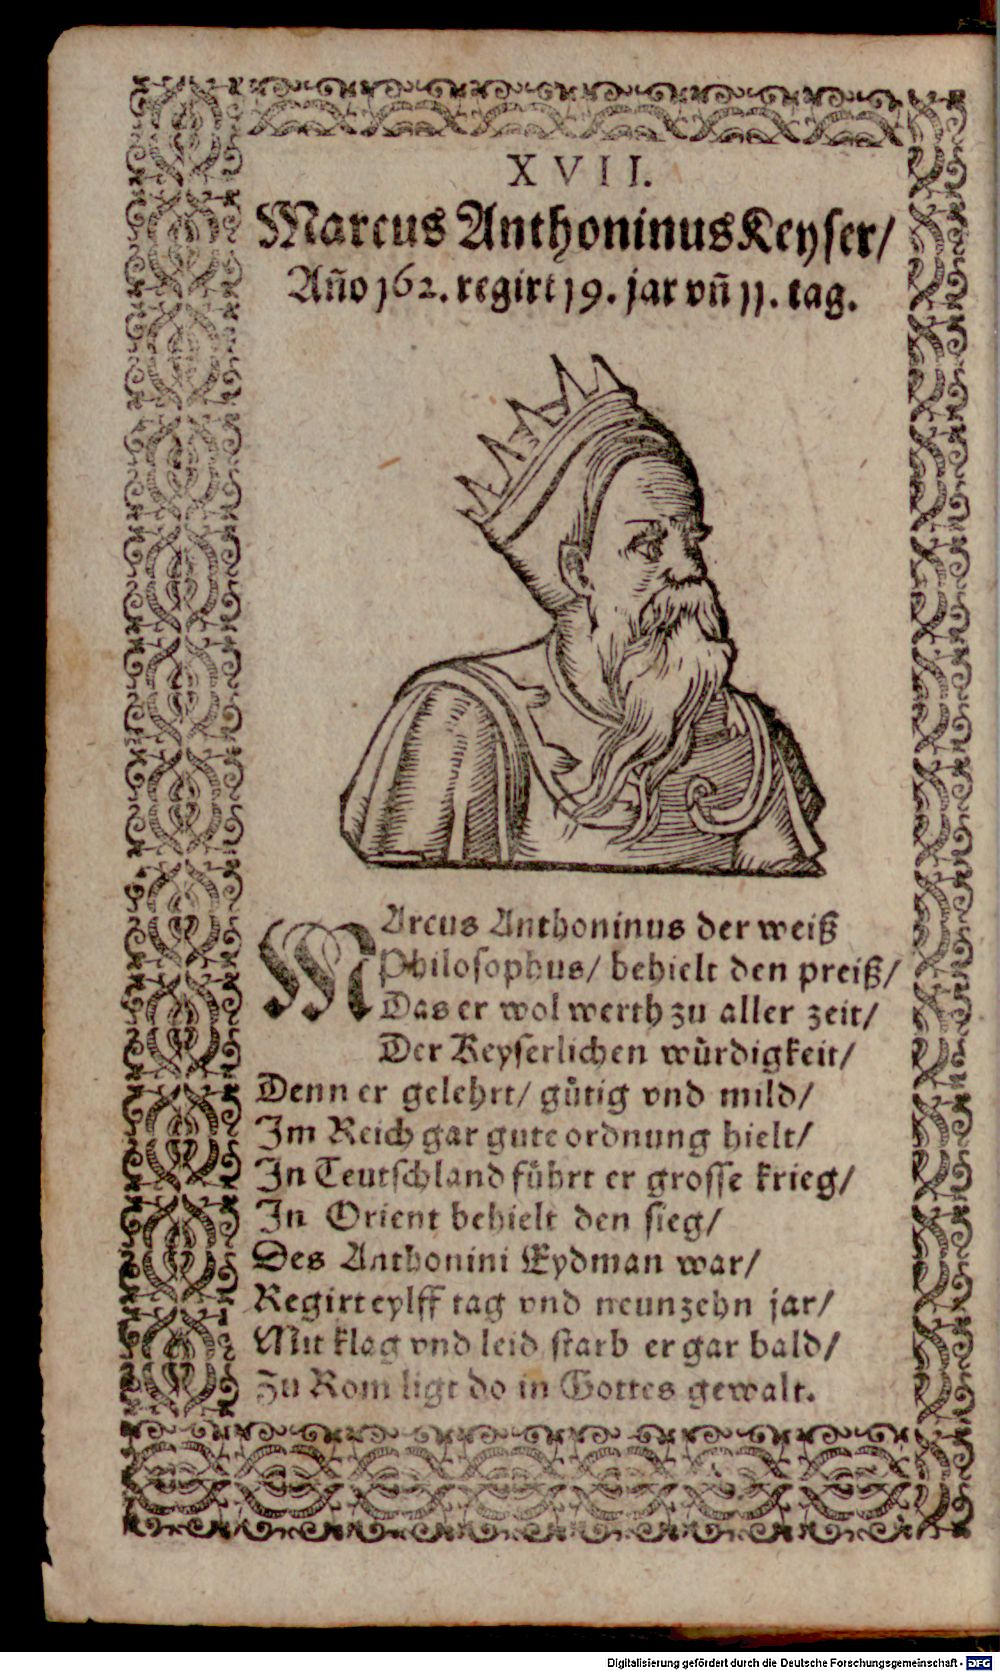 XVII.
Marcus Anthoninus Keyser/
Año 162. regirt 19. jar vñ 11. tag.
MArcus Anthoninus der weiß
Philosophus/ behielt den preiß/
Das er wol werth zu aller zeit/
Der Keyserlichen wůrdigkeit/
Denn er gelehrt/ gůtig vnd mild/
Im Reich gar gute ordnung hielt/
In Teutschland fůhrt er grosse krieg/
In Orient behielt den sieg/
Des Anthonini Eydman war/
Regirt eylff tag vnd neunzehn jar/
Mit klag vnd leid starb er gar bald/
Zu Rom ligt do in Gottes gewalt.
Digitalisierung gefördert durch die Deutsche Forschungsgemeinschaft - DFG